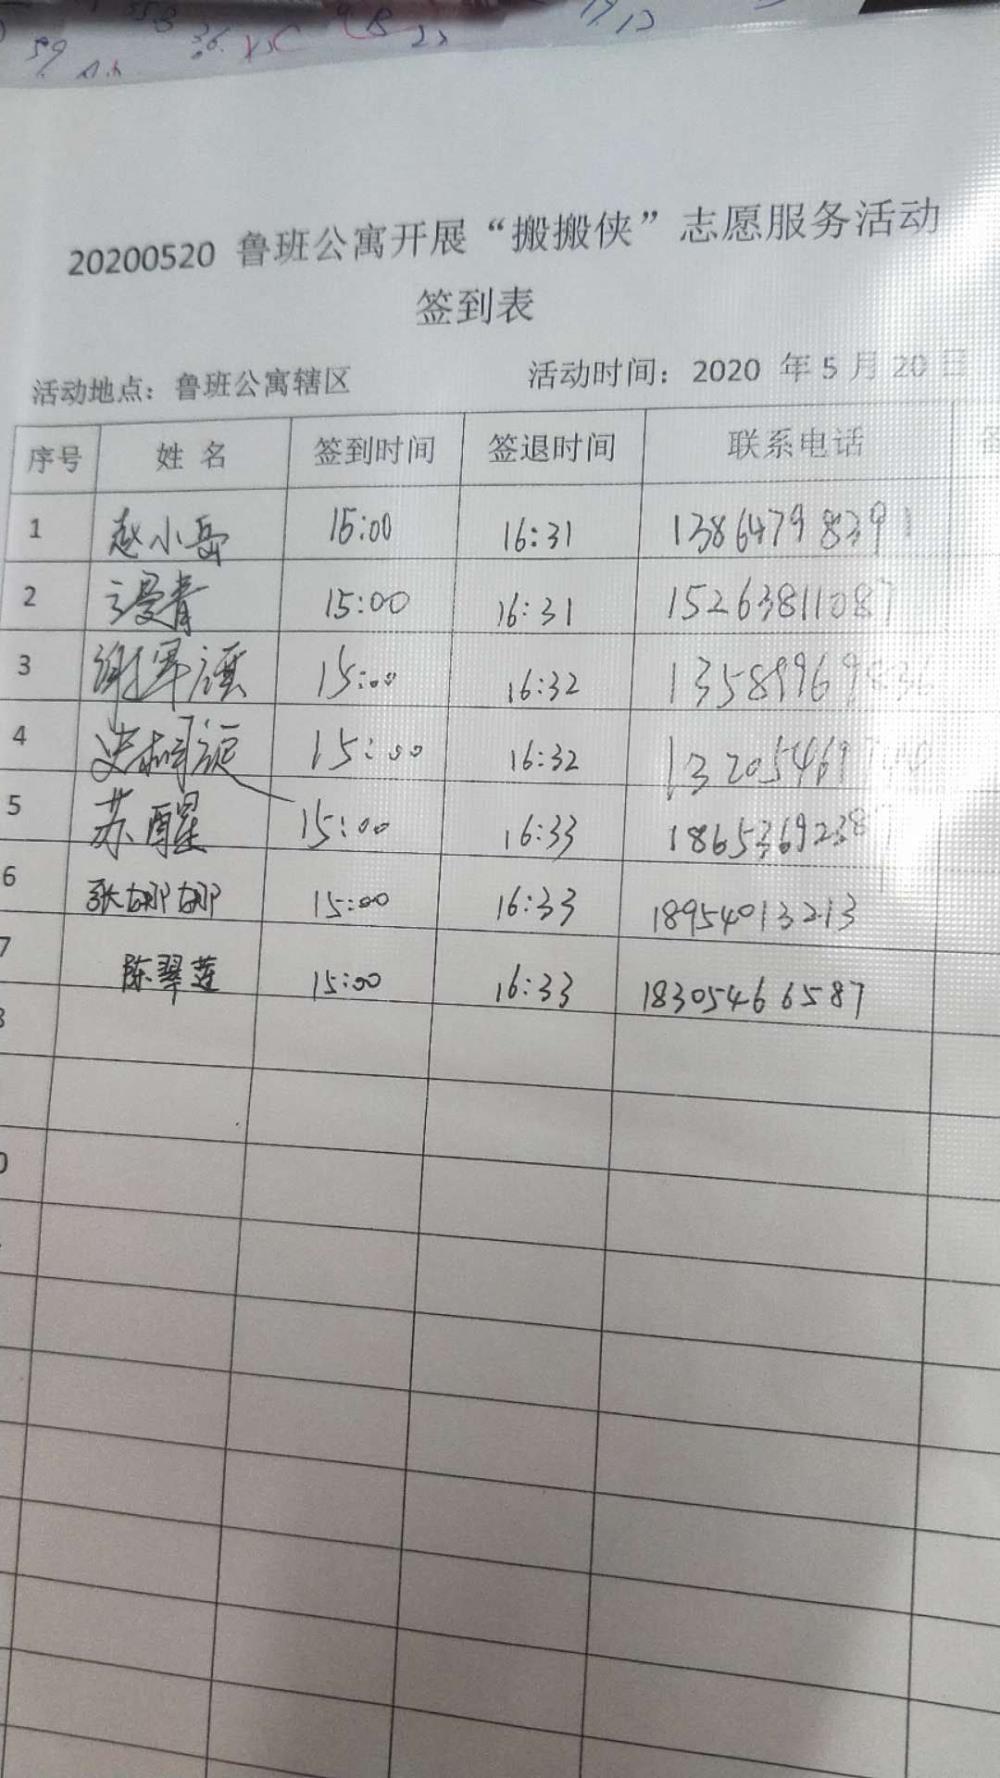 20200520 鲁班公寓开展“搬搬侠”志愿服务活动
签到表
活动地点：鲁班公寓辖区 活动时间：2020 年 5 月 20 日
序号 姓名 签到时间 签退时间 联系电话
1 赵小岳 15:00 16:31 13864798391
2 15:00 16:31 15263811087
3 15:00 16:32
4 15:00 16:32
5 苏醒 15:00 16:33
6 张娜娜 15:00 16:33 18954013213
7 陈翠莲 15:00 16:33 18305466587